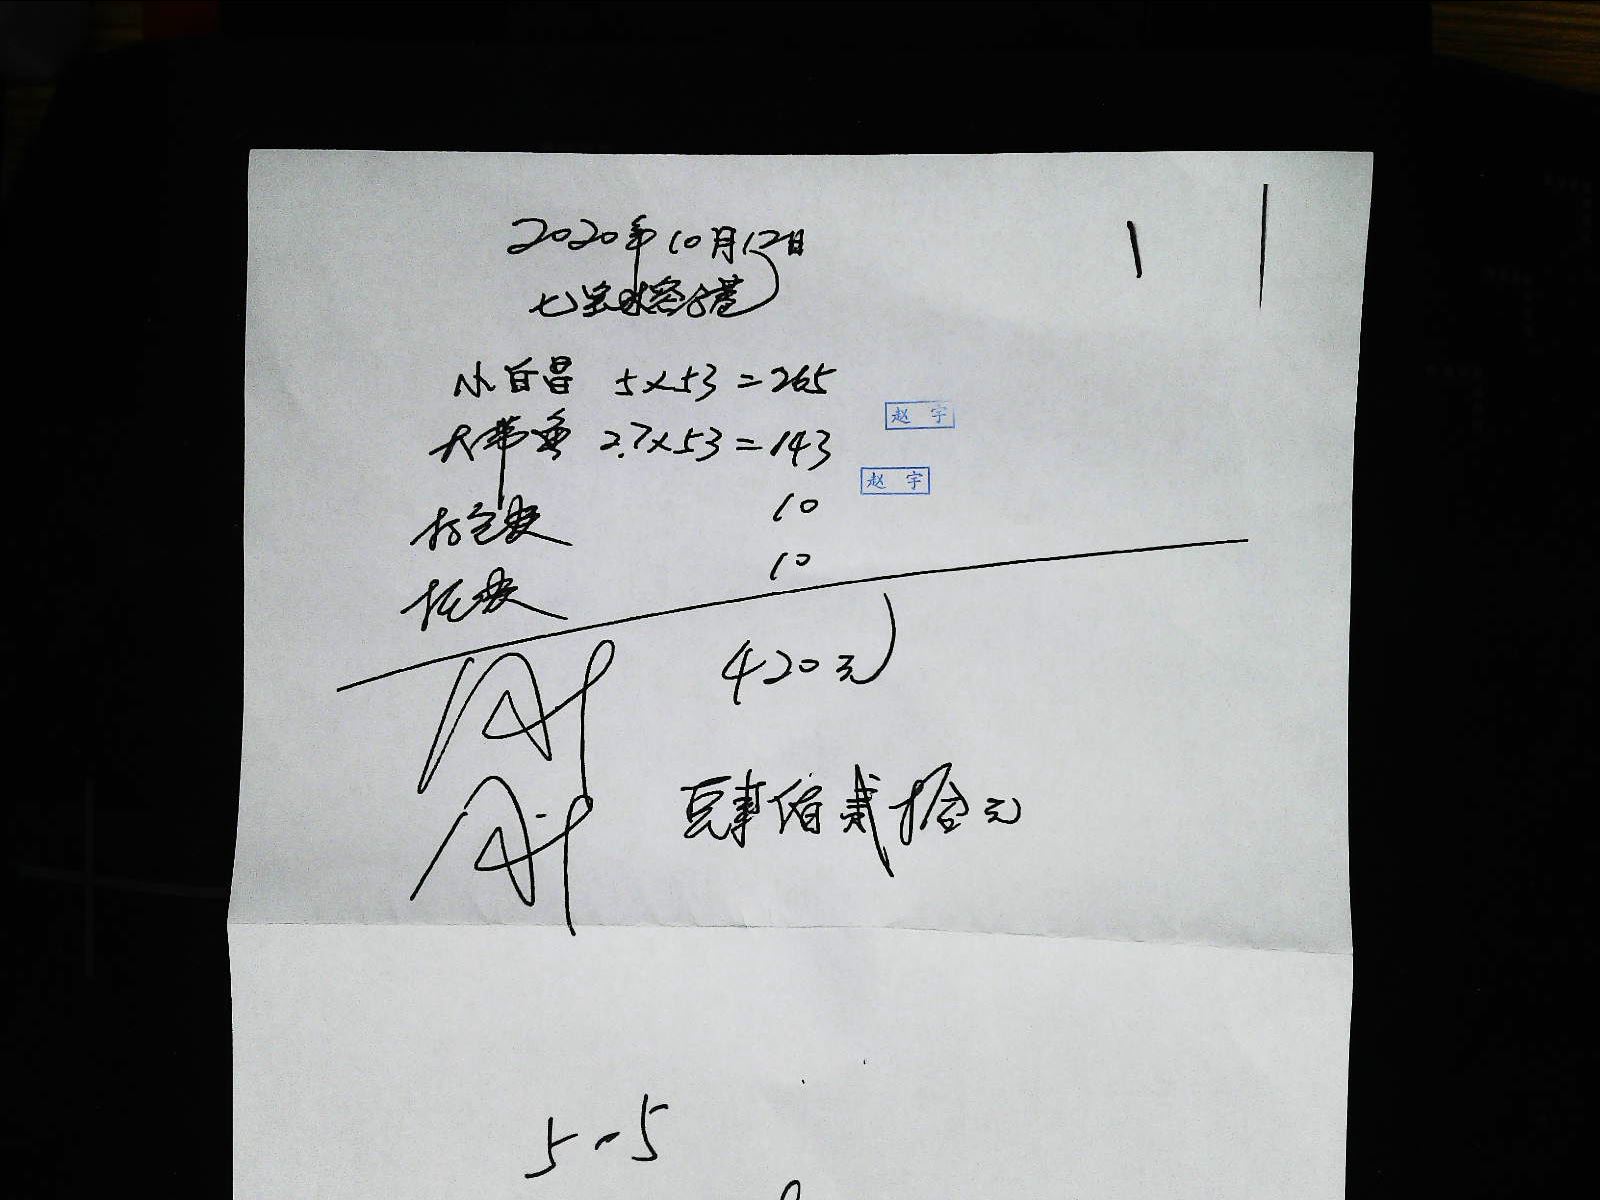 2020年10月12日
小白昌 5×53=265
赵宇
大带鱼 2.7×53=143
赵宇
打包费 10
托费 10
420元
肆佰贰拾元
5-5